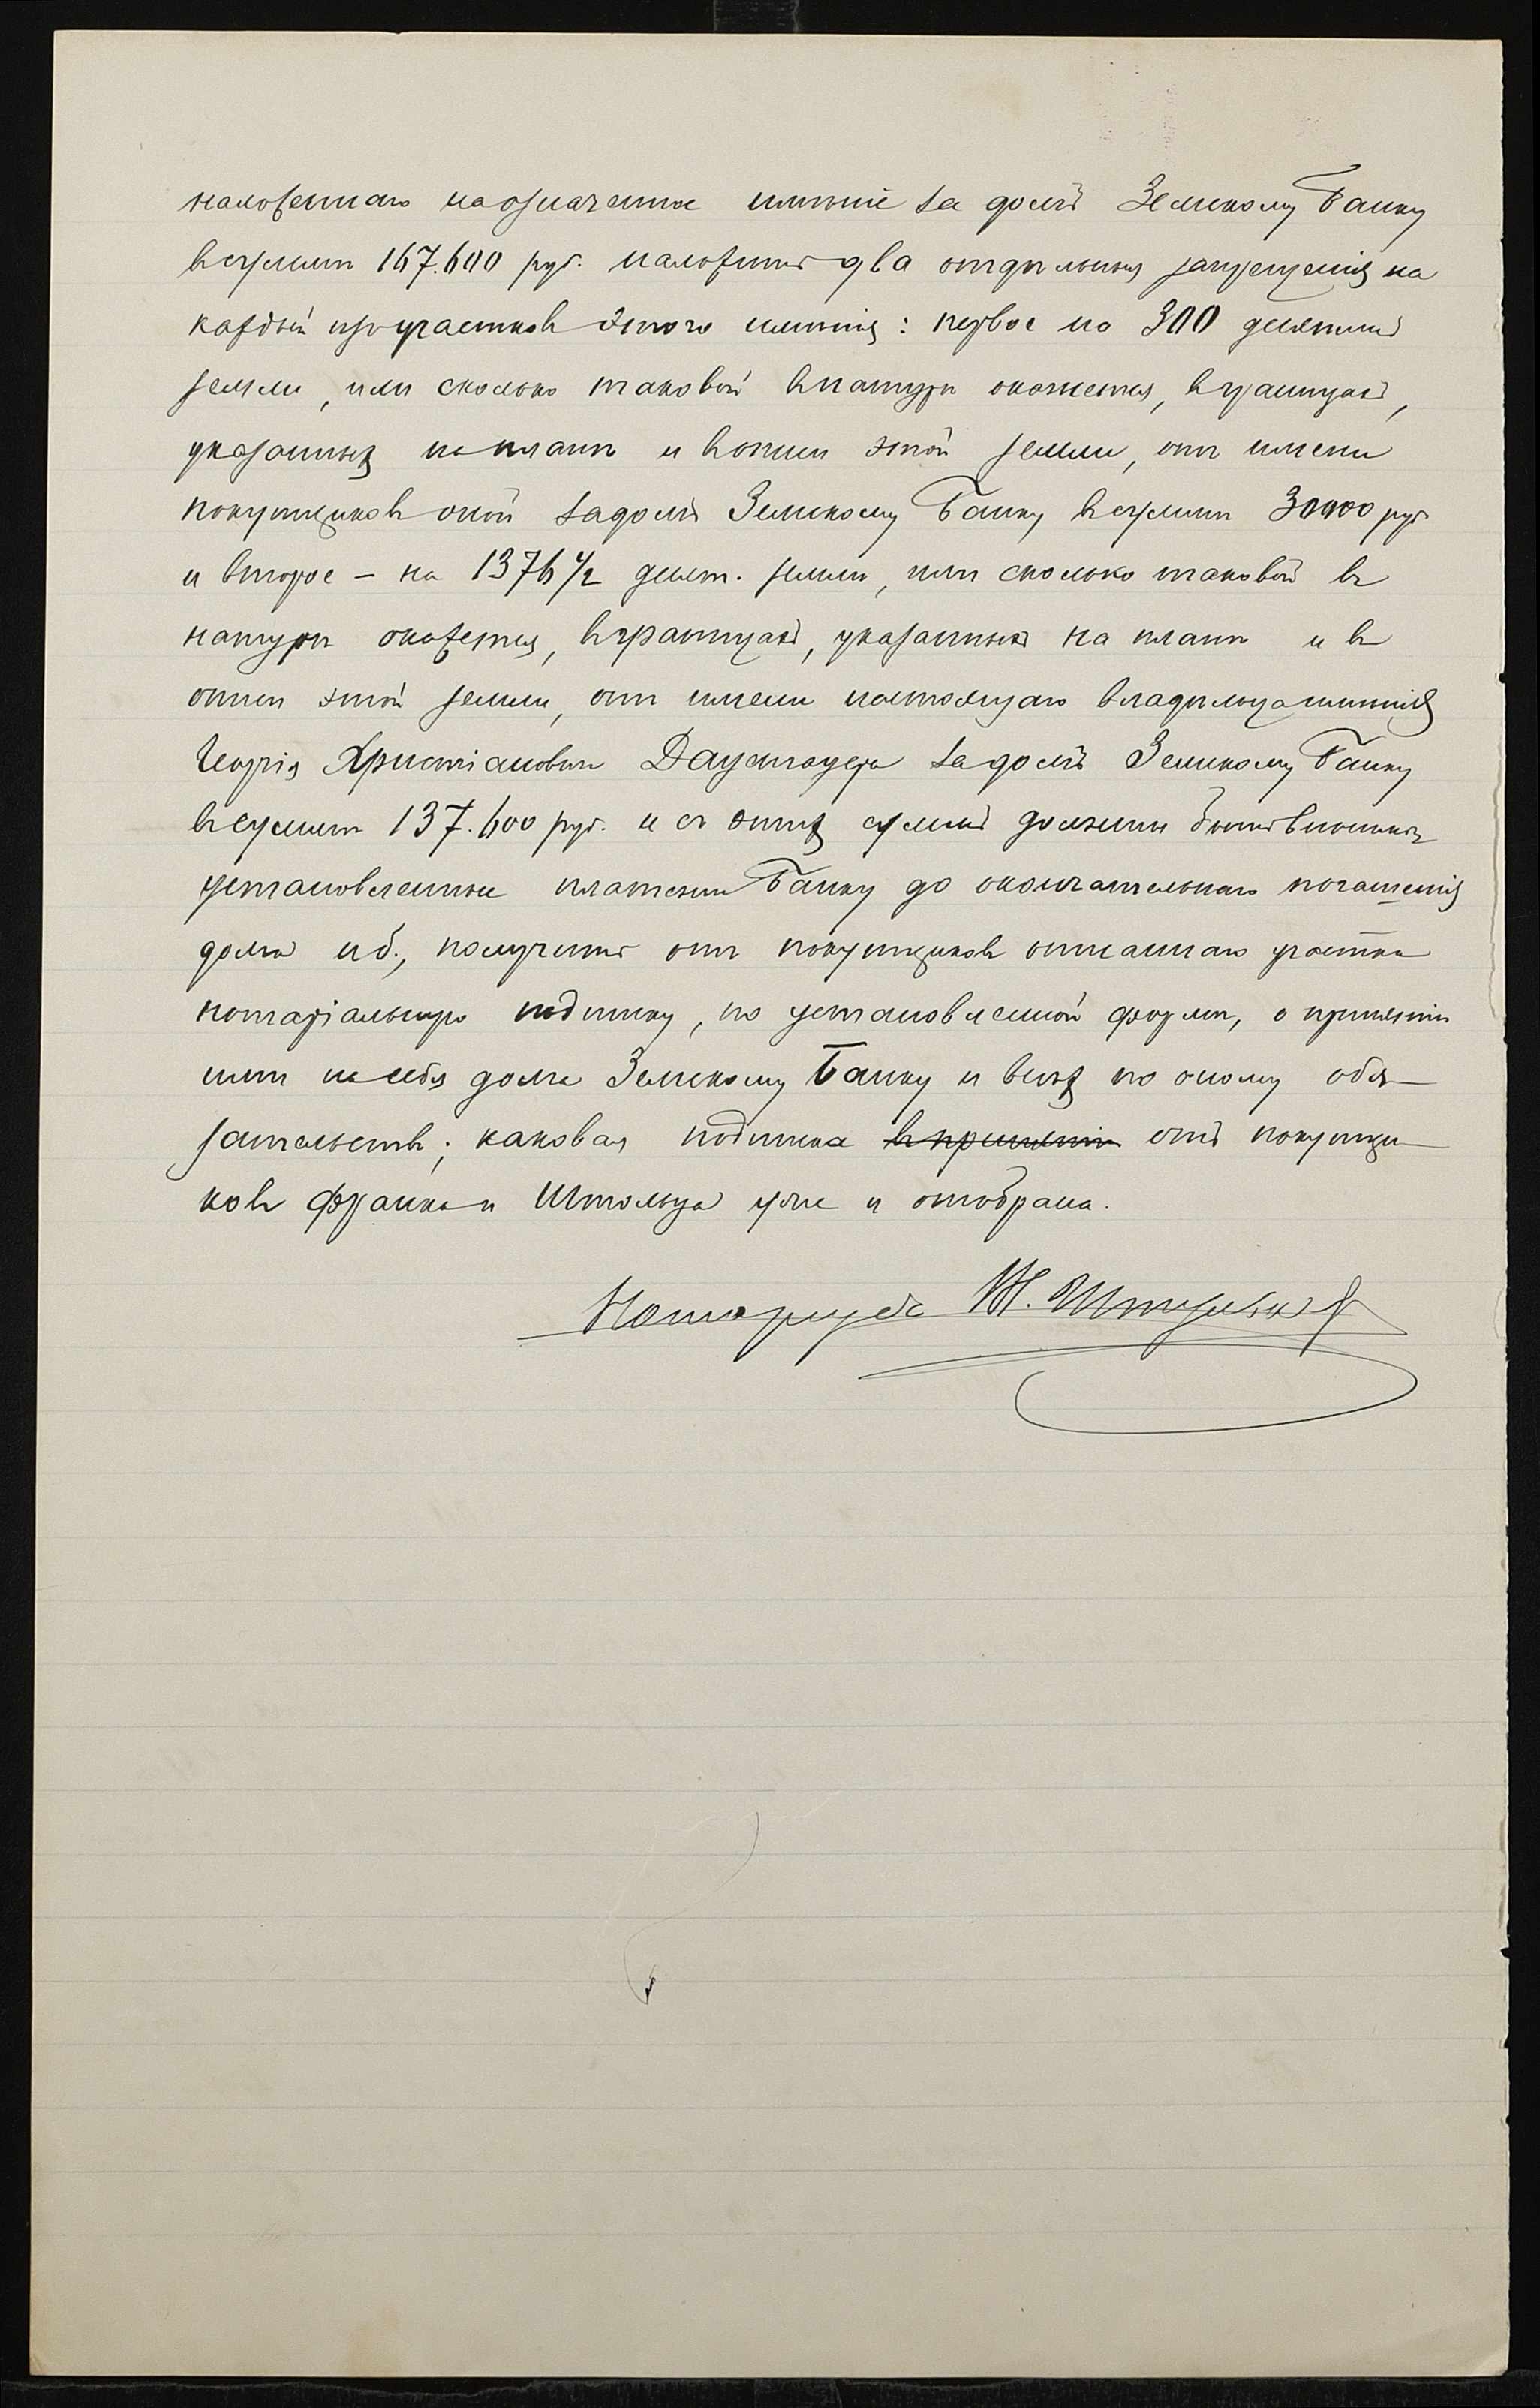 наложеннаго на означенное имѣніе за долгъ Земскому Банку
въ суммѣ 167.600 руб. наложить два отдѣльныя запрещенія на
каждый изъ участковъ этого имѣнія: первое на 300 десятинъ
земли, или сколько таковой въ натурѣ окажется, въ границахъ,
указанныхъ на планѣ и въ описи этой земли, отъ имени
покупщиковъ оной за долгъ Земскому Банку въ суммѣ 30000 руб.
и второе – на 1376 1/2 десят. земли, или сколько таковой въ
натурѣ окажется, въ границахъ, указанныхъ на планѣ и въ
описи этой земли, отъ имени настоящаго владѣльца имѣнія
Георгія Христіановича за долгъ Земскому Банку
въ суммѣ 137.600 руб. и съ этихъ суммъ должны быть вносимы
установленные платежи Банку до окончательнаго погашенія
долга и б., получить отъ покупщиковъ описаннаго участка
нотаріальную подписку, по установленной формѣ, о принятіи
ими на себя долга Земскому Банку и всѣхъ по оному обя-
зательствъ; каковая подписка въ принятіи отъ покупщи-
ковъ Франка и Штольца уже и отобрана.
Нотаріусъ